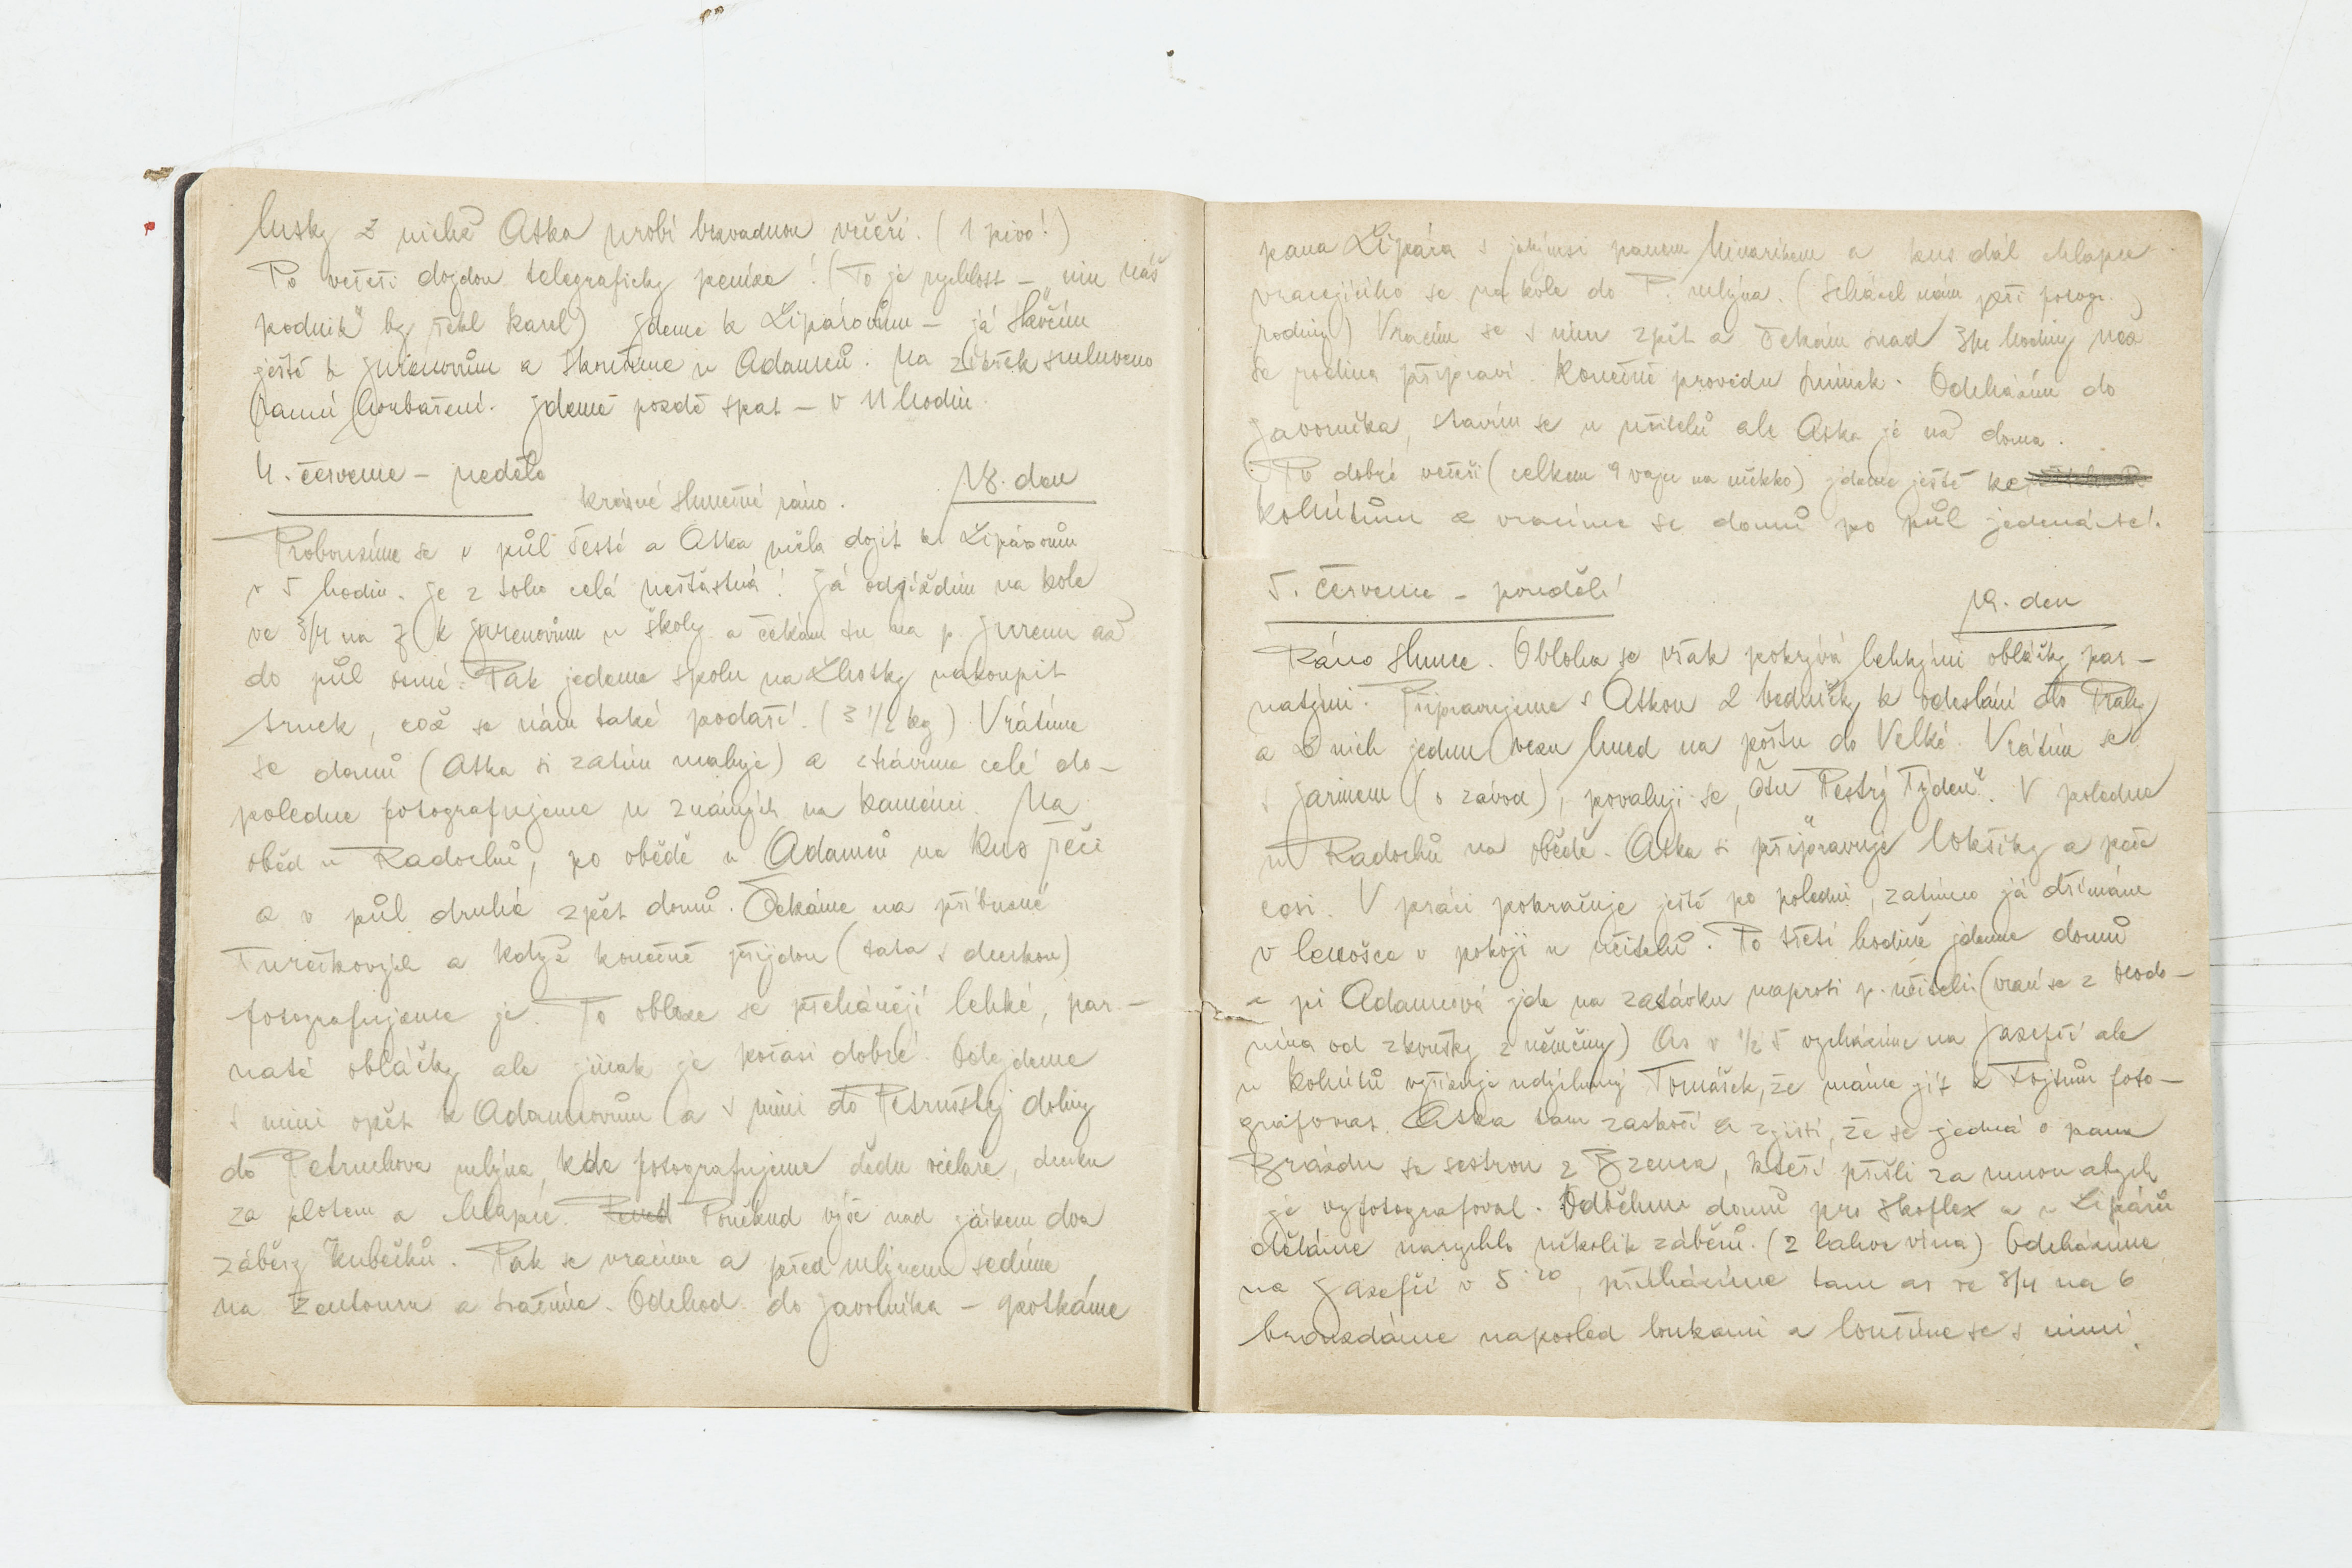 lusky z nichž Aska urobí bezvadnou večeři. (1 pivo!)
Po večeři dojdou telegraficky peníze! (To je rychlost – „nin náš
podnik" by řekl Karel) jdeme k Lipárovům – já skočím
ještě k Jurenovům a skončíme u Adamců. Na zítřek smluveno
ranní houbaření. Jdeme pozdě spat – v 11 hodin.
4. července – neděle
18. den
Krásné slunečné ráno.
Probouzíme se v půl šesté a Aska měla dojít k Lipárovům
v 5 hodin. Je z toho celá nešťastná! Já odjíždím na kole
ve 3/4 na 7 k Jurenovům u školy a čekám tu na p. Jurenu až
do půl osmé. Pak jedeme spolu na Lhotky nakoupit
truck, což se nám také podaří. (3 1/2 kg) Vrátíme
se domů (Aska si zatím maluje) a strávíme celé do-
poledne fotografujeme u známých na kaménci. Na
oběd u Radochů, po obědě u Adamců na kus řeči
a v půl druhé zpět domů. Čekáme na příbuzné
Turečkových a když konečně přijdou (tata s deckou)
fotografujeme je. Po obloze se přehánějí lehké, par-
naté obláčky ale jinak je počasí dobré. Odejdeme
s nimi opět k Adamcovům a s nimi do Petruštěj doliny
do Petruchova mlýna, kde fotografujeme dědu včelaře, decku
za plotem a chlapce. Poněkud výše nad járkem dva
záběry Kubečků. Pak se vracíme a před mlýnem sedíme
na žentouru a svačíme. Odchod do Javorníka – potkáme
pana Lipára s jakýmsi panem Minaríkem a kus dál chlapce
vracejícího se na kole do P. mlýna. (Scházel nám při fotogr.
rodiny) Vracím se s ním zpět a čekám snad 3/4 hodiny než
se rodina připraví. Konečně provedu snímek. Odcházím do
Javorníka, stavím se u učitelů ale Aska je už doma.
Po dobré večeři (celkem 9 vajec na měkko) jdeme ještě ke
Kohútům a vracíme se domů po půl jedenácté.
5. července – pondělí
19. den
Ráno slunce. Obloha se však pokrývá lehkými obláčky par-
natými. Připravujeme s Askou 2 bedničky k odeslání do Prahy
a z nich jednu vezu hned na poštu do Velké. Vrátím se
s Jarinem (o závod), povaluji se, čtu „Pestrý Týden". V poledne
u Radochů na obědě. Aska si připravuje lokšíky a peče
cosi. V práci pokračuje ještě po poledni, zatímco já dřímám
v lenošce v pokoji u učitelů. Po třetí hodině jdeme domů
a pí Adamcová jde na zastávku naproti p. učiteli (vrací se z Hodo-
nína od zkoušky z němčiny) As v 1/2 5 vycházíme na Jasefčí ale
u Kohútů vyřizuje udýchaný Tomášek, že máme jít k Fojtům foto-
grafovat. Aska tam zaskočí a zjistí, že se jedná o pana
Brázdu se sestrou z Bzence, kteří přišli za mnou abych
je vyfotografoval. Odběhnu domů pro Ikoflex a u Lipárů
děláme narychlo několik záběrů. (2 lahve vína) Odcházíme
na Jasefčí v 5.20, přicházíme tam as ve 3/4 na 6
brouzdáme naposled loukami a loučíme se s nimi.